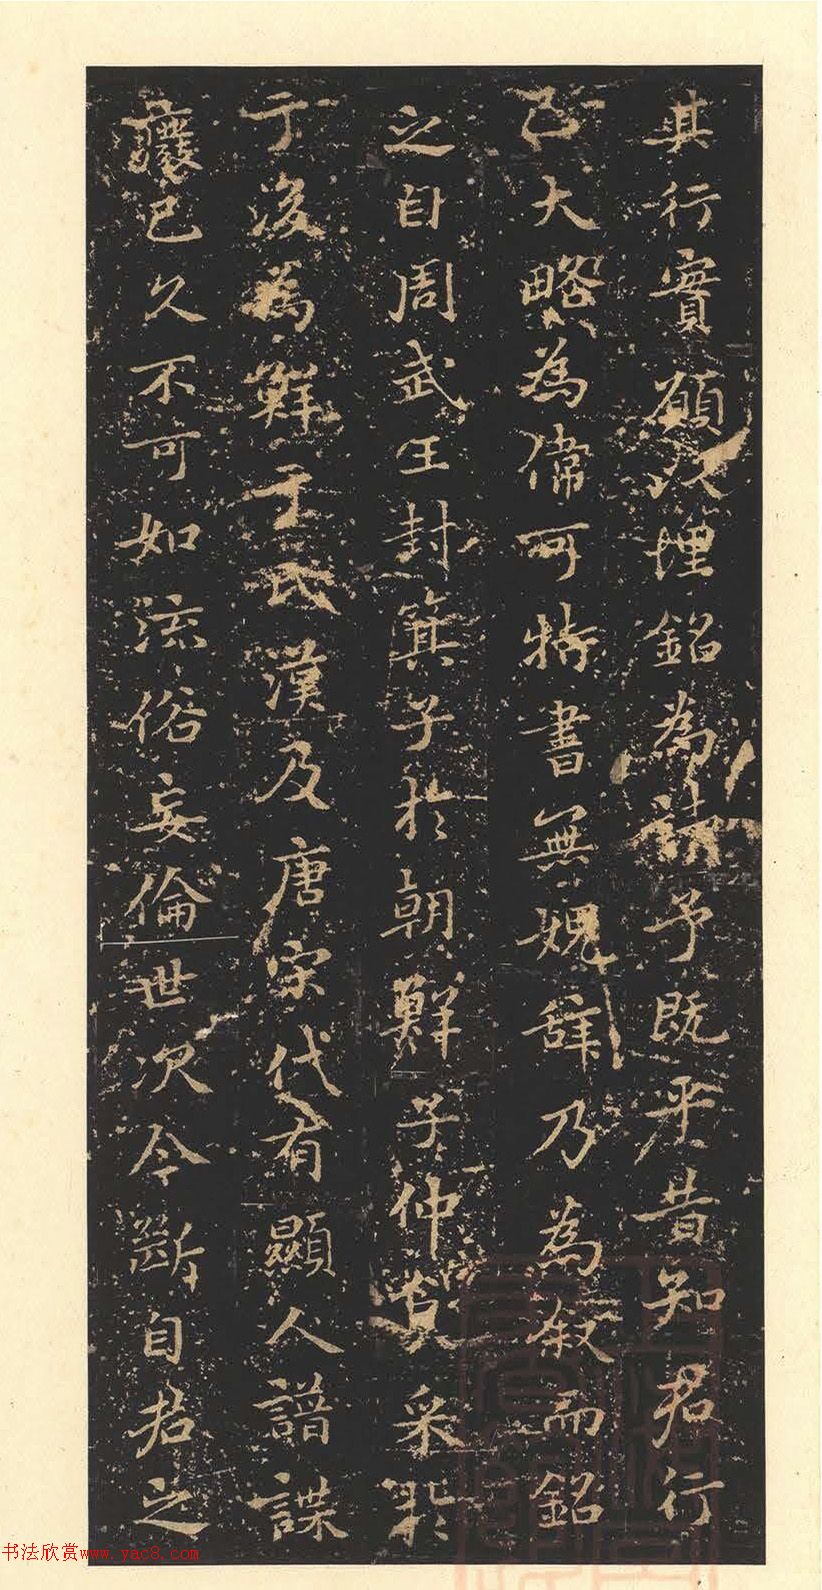 其行實願以埋銘為請予既平昔知君行
己大略為儒可特書無媿辞乃為叙而銘
之自周武王封箕子於朝鮮子仲食采於
于後為鮮于氏漢及唐宋代有顯人譜諜
已久不可如流俗妄倫世次今斷自君之
书法欣赏www.yac8.com